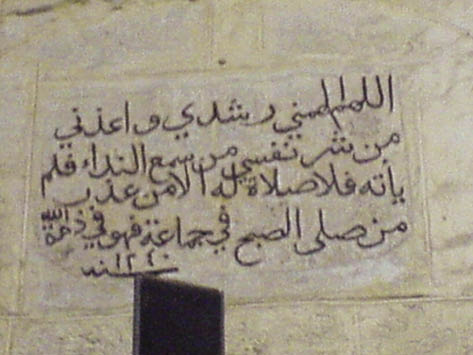 اللهم الهمني رشدي واعذني
من شر نفسي من سمع النداء فلم
يأته فلا صلاة له الا من عذر
من صلى الصبح في جماعة فهو في ذمة الله
سنة ١٢٤٠